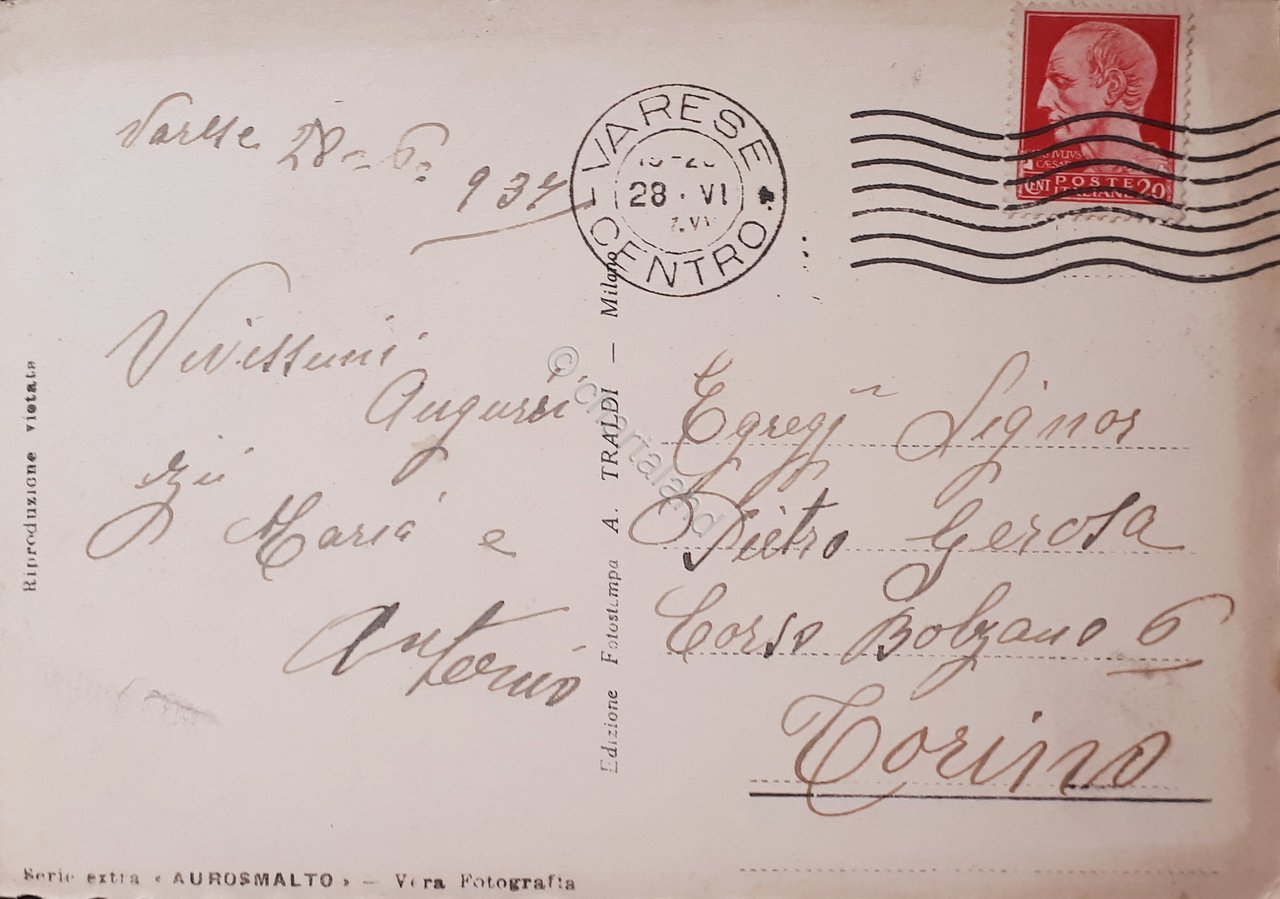 Varese 28=6=
937
VARESE
28 · VI
CENTRO
IVLIVS
CAESAR
CENT POSTE 20
ITALIANE
Vivissimi
Auguri
zii
Maria e
Antonio
Egregi Signor
Pietro Gerosa
Corso Bolzano 6
Torino
Riproduzione vietata
Edizione Fotostampa A. TRALDI — Milano
Serie extra « AUROSMALTO » — Vera Fotografia
© chartaland